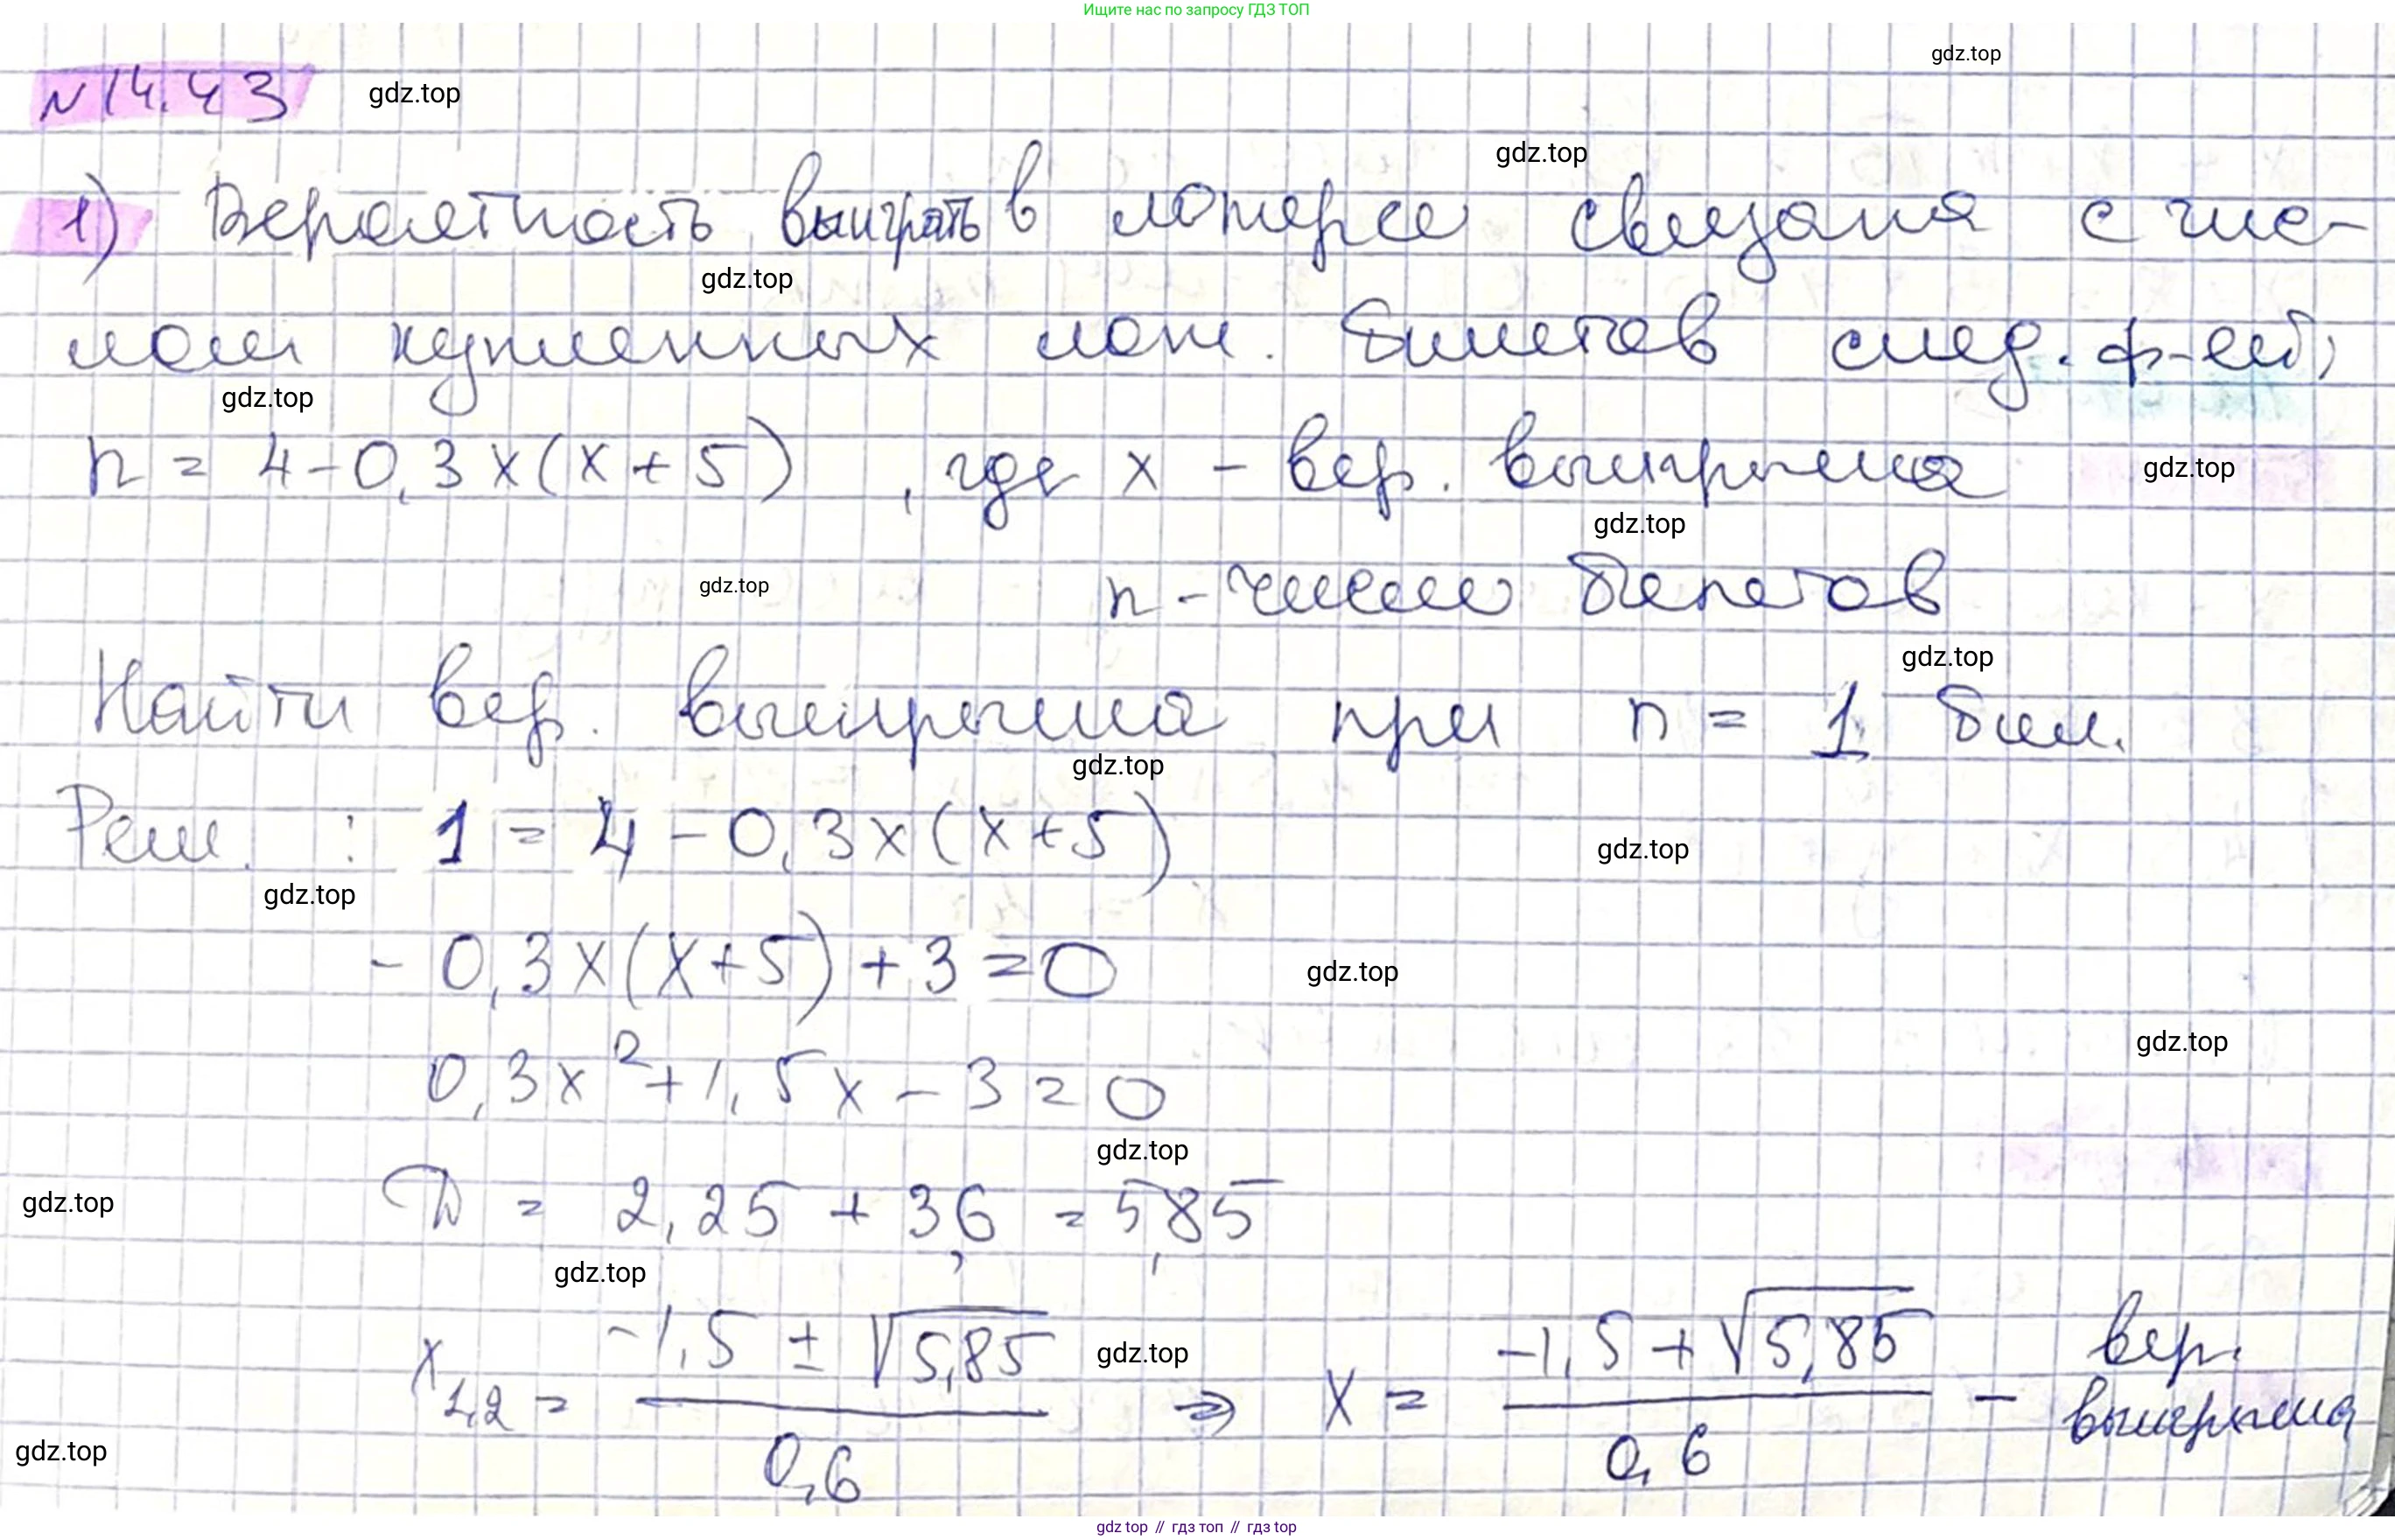 Ищите нас по запросу ГДЗ ТОП
gdz.top
N 14.43 gdz.top
gdz.top
1) Вероятность выиграть в лотерее связана с чис-
gdz.top
лом купленных лот. билетов след. ф-ей;
gdz.top
n = 4 - 0,3x(x + 5) , где x - вер. выигрыша
gdz.top
gdz.top
gdz.top
n - число билетов
gdz.top
Найти вер. выигрыша при n = 1 бил.
gdz.top
Реш. : 1 = 4 - 0,3x(x+5)
gdz.top
gdz.top
- 0,3x(x+5) + 3 = 0
gdz.top
gdz.top
0,3x² + 1,5x - 3 = 0
gdz.top
gdz.top
D = 2,25 + 3,6 = 5,85
gdz.top
x1,2 = (-1,5 ± √5,85) / 0,6 ⇒ x = (-1,5 + √5,85) / 0,6 - вер. выигрыша
gdz.top
gdz.top
gdz top // гдз топ // гдз top